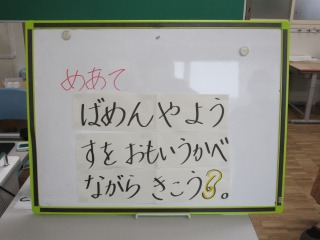 めあて
ばめんやよう
すをおもいうかべ
ながらきこう?。